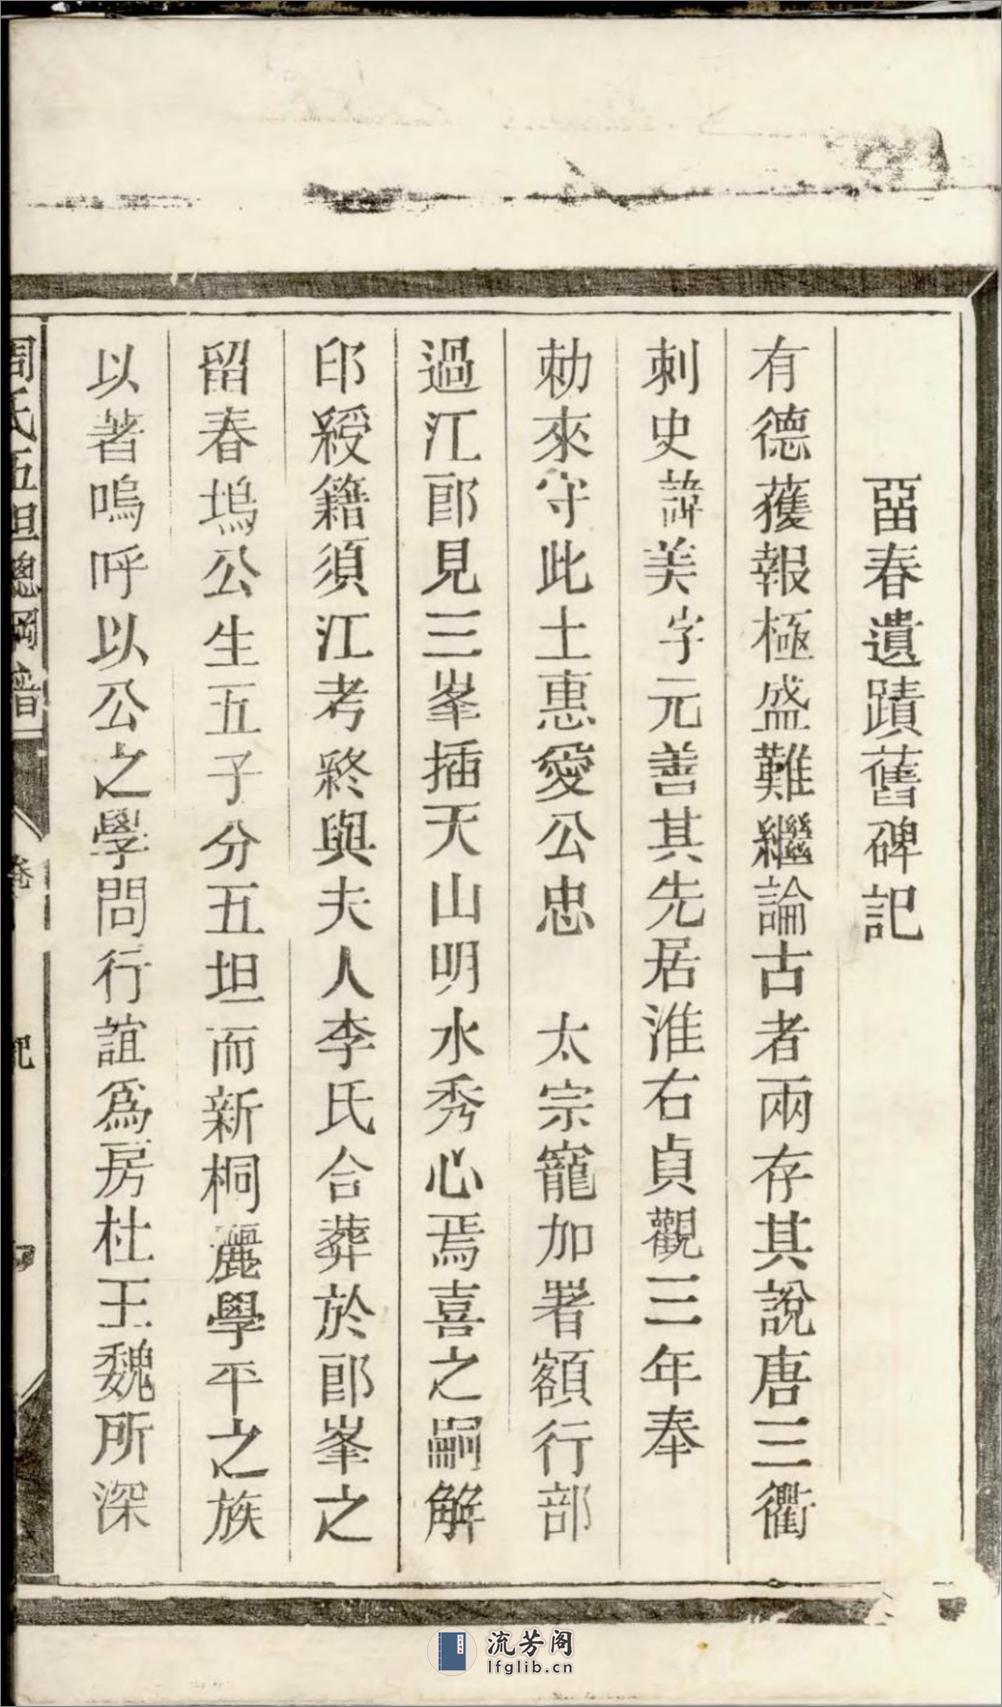 畱春遺蹟舊碑記
有德獲報極盛難繼論古者兩存其說唐三衢
刺史諱美字元善其先居淮右貞觀三年奉
勅來守此土惠愛公忠　太宗寵加署額行部
過江郎見三峯插天山明水秀心焉喜之嗣解
印綬籍須江考終與夫人李氏合葬於郎峯之
留春塢公生五子分五坦而新桐麗學平之族
以著嗚呼以公之學問行誼爲房杜王魏所深
周氏五坦總綱譜
卷
記
流芳阁
lfglib.cn